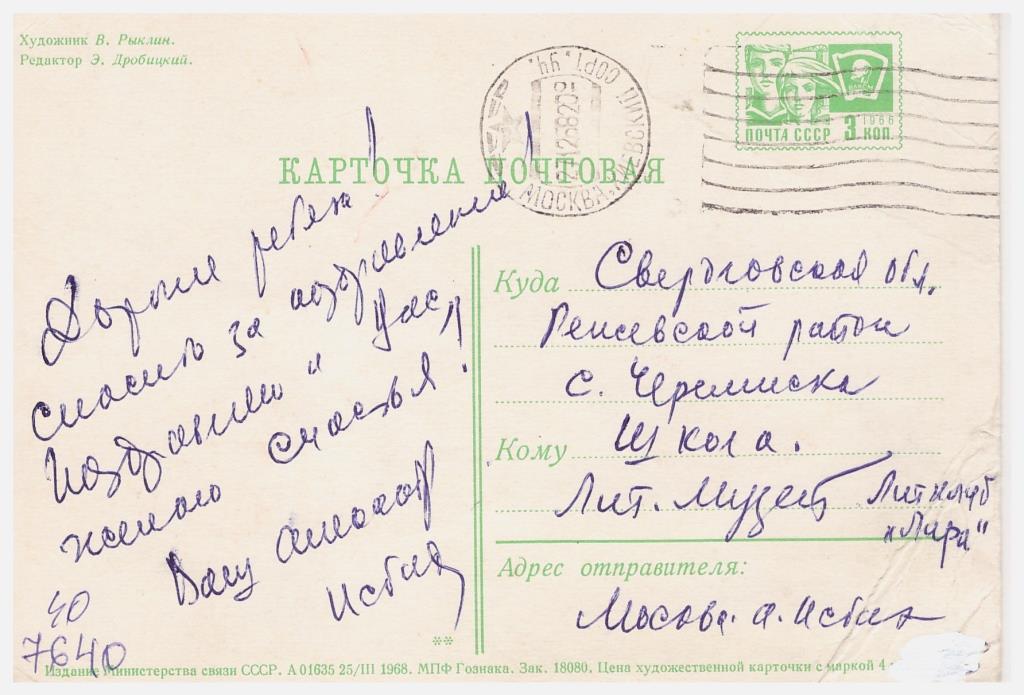 Художник В. Рыклин.
Редактор Э. Дробицкий.
ПОЧТА СССР 3 КОП.
1966
МОСКВА
КАРТОЧКА ПОЧТОВАЯ
Дорогие ребята!
спасибо за поздравление!
Поздравляю и Вас,
желаю счастья!
Ваш Александр
Исбах
40
7640
Куда Свердловская обл.
Режевской район
с. Черемиска
Кому Школа.
Лит. Музей Литклуб
"Лира"
Адрес отправителя:
Москва. А. Исбах
**
Издание Министерства связи СССР. А 01635 25/III 1968. МПФ Гознака. Зак. 18080. Цена художественной карточки с маркой 4